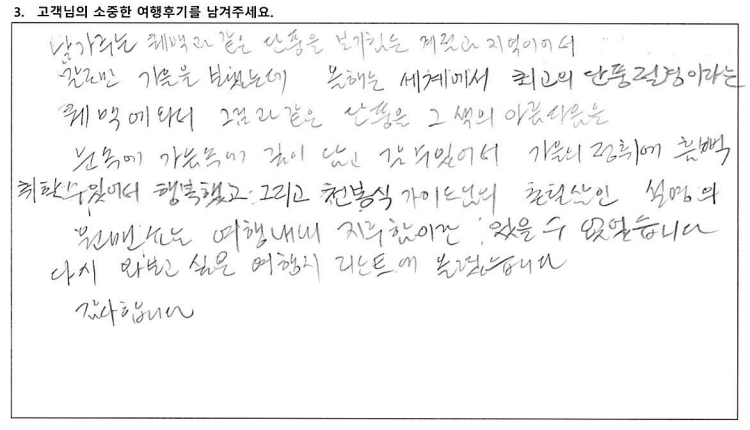 3. 고객님의 소중한 여행후기를 남겨주세요.
남가주는 퀘백과 같은 단풍을 보기힘는 지역이어서
갈로만 가을을 보냈는데 올해는 세계에서 최고의 단풍절경이라는
퀘백에와서 그림과 같은 단풍을 그 색의 아름다움을
눈속에 가슴속에 깊이 담고 갈수있어서 가을의 정취에 흠뻑
취할수있어서 행복했고 그리고 천봉식 가이드님의 설명의
원맨쇼는 여행내내 지루함이란 있을 수 없었습니다
다시 와보고 싶은 여행지 리스트에 올렸습니다
감사합니다